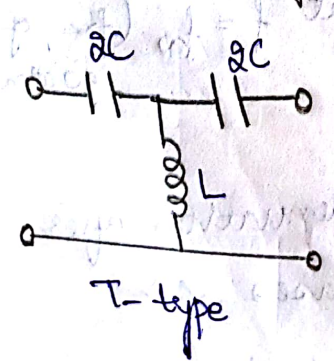 2C 2C
L
T- type